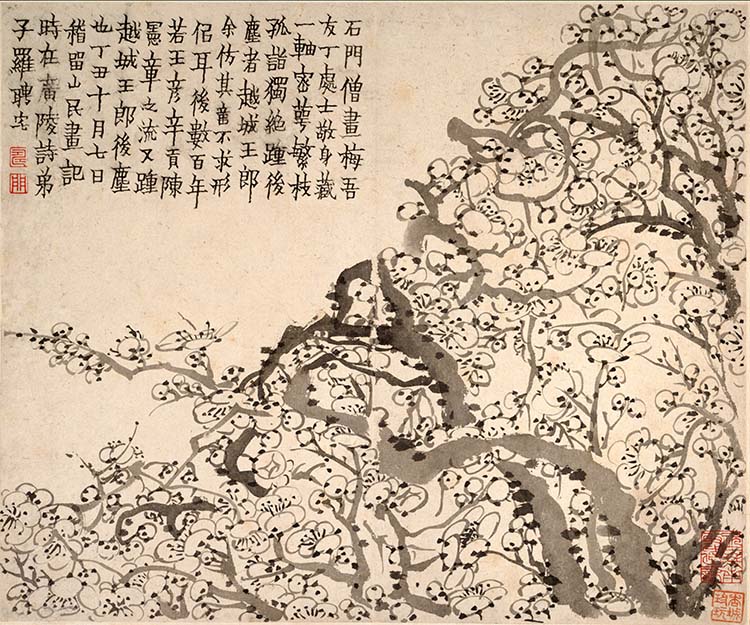 石門僧畫梅吾
友丁處士敬身藏
一軸密萼繁枝
孤詣獨絕踵後
塵者越城王郎
余仿其意不求形
侣耳後數百年
若王彥辛貢陳
憲章之流又踵
越城王郎後塵
也丁丑十月七日
稽留山民畫記
時在廣陵詩弟
子羅聘